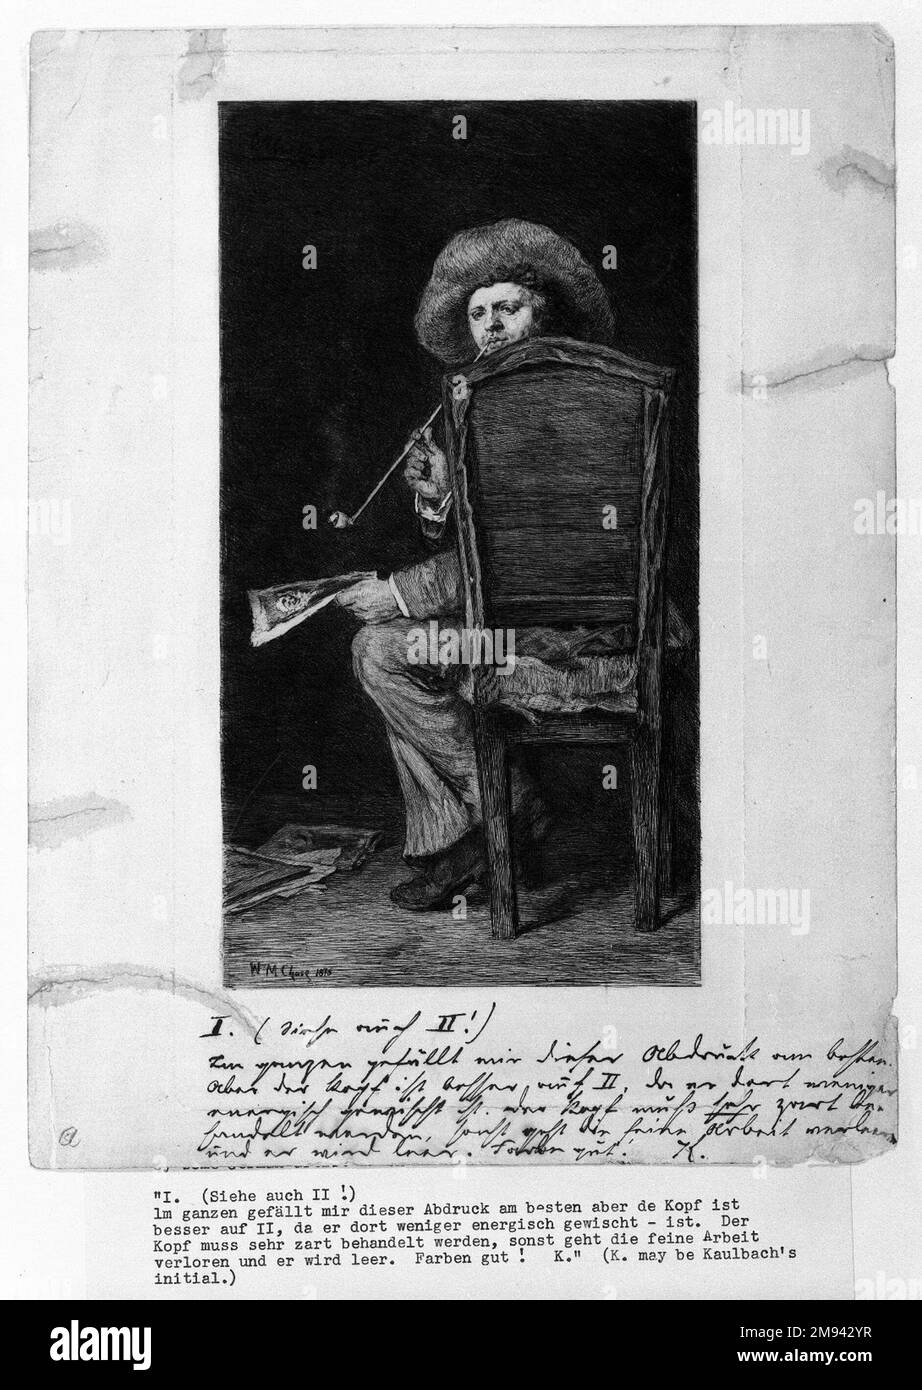 W M Chase 1875
I. (Siehe auch II!)
Im ganzen gefällt mir dieser Abdruck am besten.
Aber der Kopf ist besser auf II, da er dort weniger
energisch gewischt ist. Der Kopf muß sehr zart be-
handelt werden, sonst geht die feine Arbeit verloren
und er wird leer. Farben gut! K.
"I. (Siehe auch II !)
lm ganzen gefällt mir dieser Abdruck am besten aber de Kopf ist
besser auf II, da er dort weniger energisch gewischt - ist. Der
Kopf muss sehr zart behandelt werden, sonst geht die feine Arbeit
verloren und er wird leer. Farben gut ! K." (K. may be Kaulbach's
initial.)
a alamy
alamy
Image ID: 2M942YR
www.alamy.com